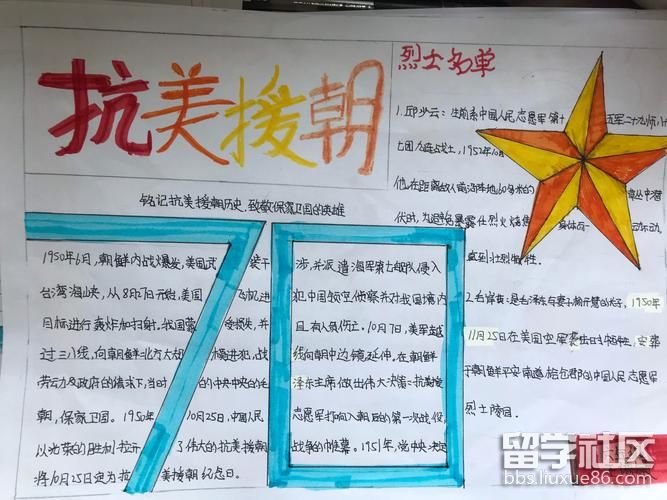 抗美援朝
铭记抗美援朝历史,致敬保家卫国的英雄
1950年6月,朝鲜内战爆发,美国武装干涉,并派遣海军第七舰队侵入
台湾海峡,从8月27日开始,美国飞机进犯中国领空侦察并对我国境内
目标进行轰炸和扫射,我国蒙受损失,并且有人员伤亡。10月7日,美军越
过三八线,向朝鲜北方大举进犯,战线向朝中边境延伸,在朝鲜
劳动力及政府的请求下,当时的中共中央的毛泽东主席做出伟大决策:抗美援
朝,保家卫国。1950年10月25日,中国人民志愿军打响入朝后的第一次战役,
以光荣的胜利拉开了伟大的抗美援朝战争的帷幕。1951年,党中央决定
将10月25日定为抗美援朝纪念日。
70
烈士名单
1.邱少云:生前系中国人民志愿军第十五军二十九师八十
七团九连战士,1952年10月
他在距离敌人前沿阵地60多米的草丛中潜
伏时,为避免暴露任烈火烧焦身体而一动不动,
直到壮烈牺牲。
2.毛岸英:是毛泽东与妻子杨开慧的长子,1950年
11月25日在美国空军轰炸中牺牲,安葬
于朝鲜平安南道桧仓郡的中国人民志愿军
烈士陵园。
留学社区
bbs.liuxue86.com